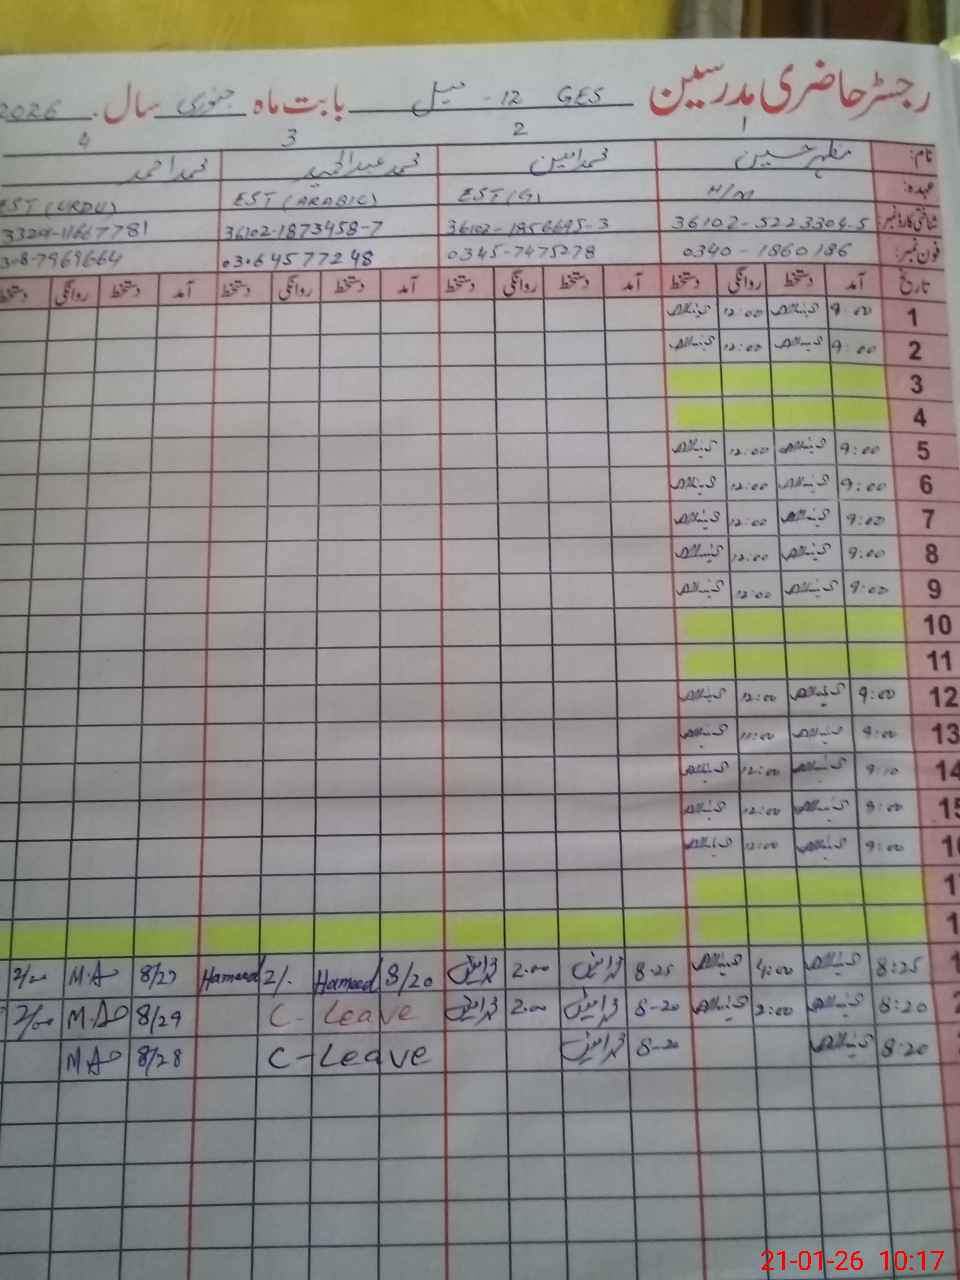 رجسٹر حاضری مدرسین GES 12 - میل بابت ماہ جنوری سال 2026
1 2 3 4
نام: مظہر حسین محمد امین محمد عبدالحمید محمد احمد
عہدہ: H/M EST(G) EST (ARABIC) EST (URDU)
شناختی کارڈ نمبر: 36102-5223304-5 36102-1856695-3 36102-1873458-7
فون نمبر: 0340-1860186 0345-7475278 03064577248
تاریخ آمد دستخط روانگی دستخط آمد دستخط روانگی دستخط آمد دستخط روانگی دستخط آمد دستخط روانگی دستخط
1 9:00 12:00
2 9:00 12:00
3
4
5 9:00 12:00
6 9:00 12:00
7 9:00 12:00
8 9:00 12:00
9 9:00 12:00
10
11
12 9:00 12:00
13 9:00 11:00
14 9:10 12:00
15 9:00 12:00
16 9:00 12:00
8:25 4:00 8-25 2.00 8/20 Hameed 2/. Hameed 8/27 M.A 2/00
8:20 2:00 8-20 2.00 C-Leave 8/29 M.A 2/00
8:20 8-20 C-Leave 8/28 M.A
21-01-26 10:17